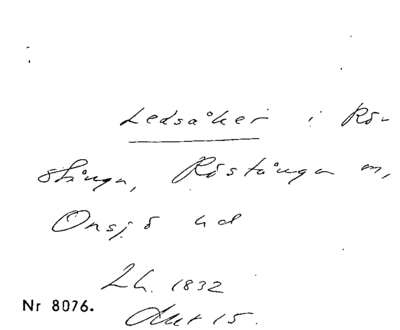 Ledsåker i Rö-
stånga, Röstånga sn,
Onsjö hd
Lh. 1832
Akt 15.
Nr 8076.